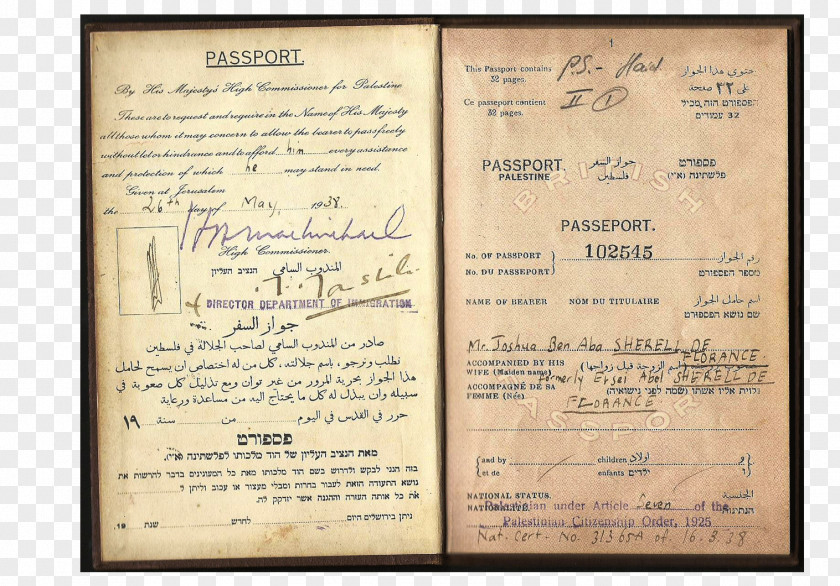 PASSPORT.
By His Majesty's High Commissioner for Palestine
These are to request and require in the Name of His Majesty
all those whom it may concern to allow the bearer to pass freely
without let or hindrance and to afford him every assistance
and protection of which he may stand in need.
Given at Jerusalem
the 26th day of May, 1938.
High Commissioner.
المندوب السامي הנציב העליון
DIRECTOR DEPARTMENT OF IMMIGRATION
جواز السفر
صادر من المندوب السامي لصاحب الجلالة في فلسطين
نطلب ونرجو، باسم جلالته، كل من له اختصاص ان يسمح لحامل
هذا الجواز بحرية المرور من غير توان ومع تذليل كل صعوبة في
سبيله وان يبذل له كل ما يحتاج اليه من مساعدة ورعاية
حرر في القدس في اليوم من سنة ١٩
פספורט
מאת הנציב העליון של הוד מלכותו לפלשתינה (א״י).
בזה הנני לבקש ולדרוש בשם הוד מלכותו מאת כל הממונים בדבר להרשות את
נושא התעודה הזאת לעבור בחרות ומבלי מעצור או עכוב וליתן ל
את כל אותה העזרה וההגנה אשר יזדקק לה.
ניתן בירושלים היום לחדש שנת 19
1
This Passport contains
32 pages.
Ce passeport contient
32 pages.
P.S. -
II 1
يحتوي هذا الجواز
على ٣٢ صفحة
הפספורט הזה מכיל
32 עמודים
BRITISH
PASSPORT
PASSPORT.
PALESTINE
جواز السفر
فلسطين
פספורט
פלשתינה (א״י)
PASSEPORT.
No. OF PASSPORT
No. DU PASSEPORT
102545
رقم الجواز
מספר הפספורט
NAME OF BEARER NOM DU TITULAIRE
اسم حامل الجواز
שם נושא הפספורט
Mr. Joshua Ben Aba SHERELL DE
FLORANCE.
ACCOMPANIED BY HIS
WIFE (Maiden name)
ACCOMPAGNÉ DE SA
FEMME (Née)
formerly Abel SHERELL DE
FLORANCE
לוית אליו אשתו (שמה לפני נישואיה)
and by children اولاد و
et de enfants ילדים
NATIONAL STATUS.
NATIONALITÉ.
الجنسية
הנתינות
Palestinian under Article Seven of the
Palestinian Citizenship Order, 1925
Nat. Cert. No. 31365A of 16.3.38